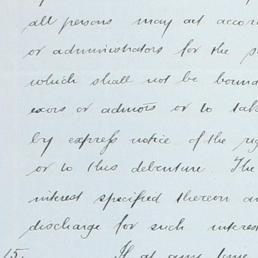 all persons may act accor
or administrators for the s
which shall not be bound
exors or admors or to tak
by express notice of the ri
or to this debenture. The
interest specified thereon an
discharge for such interes
15. If at any time